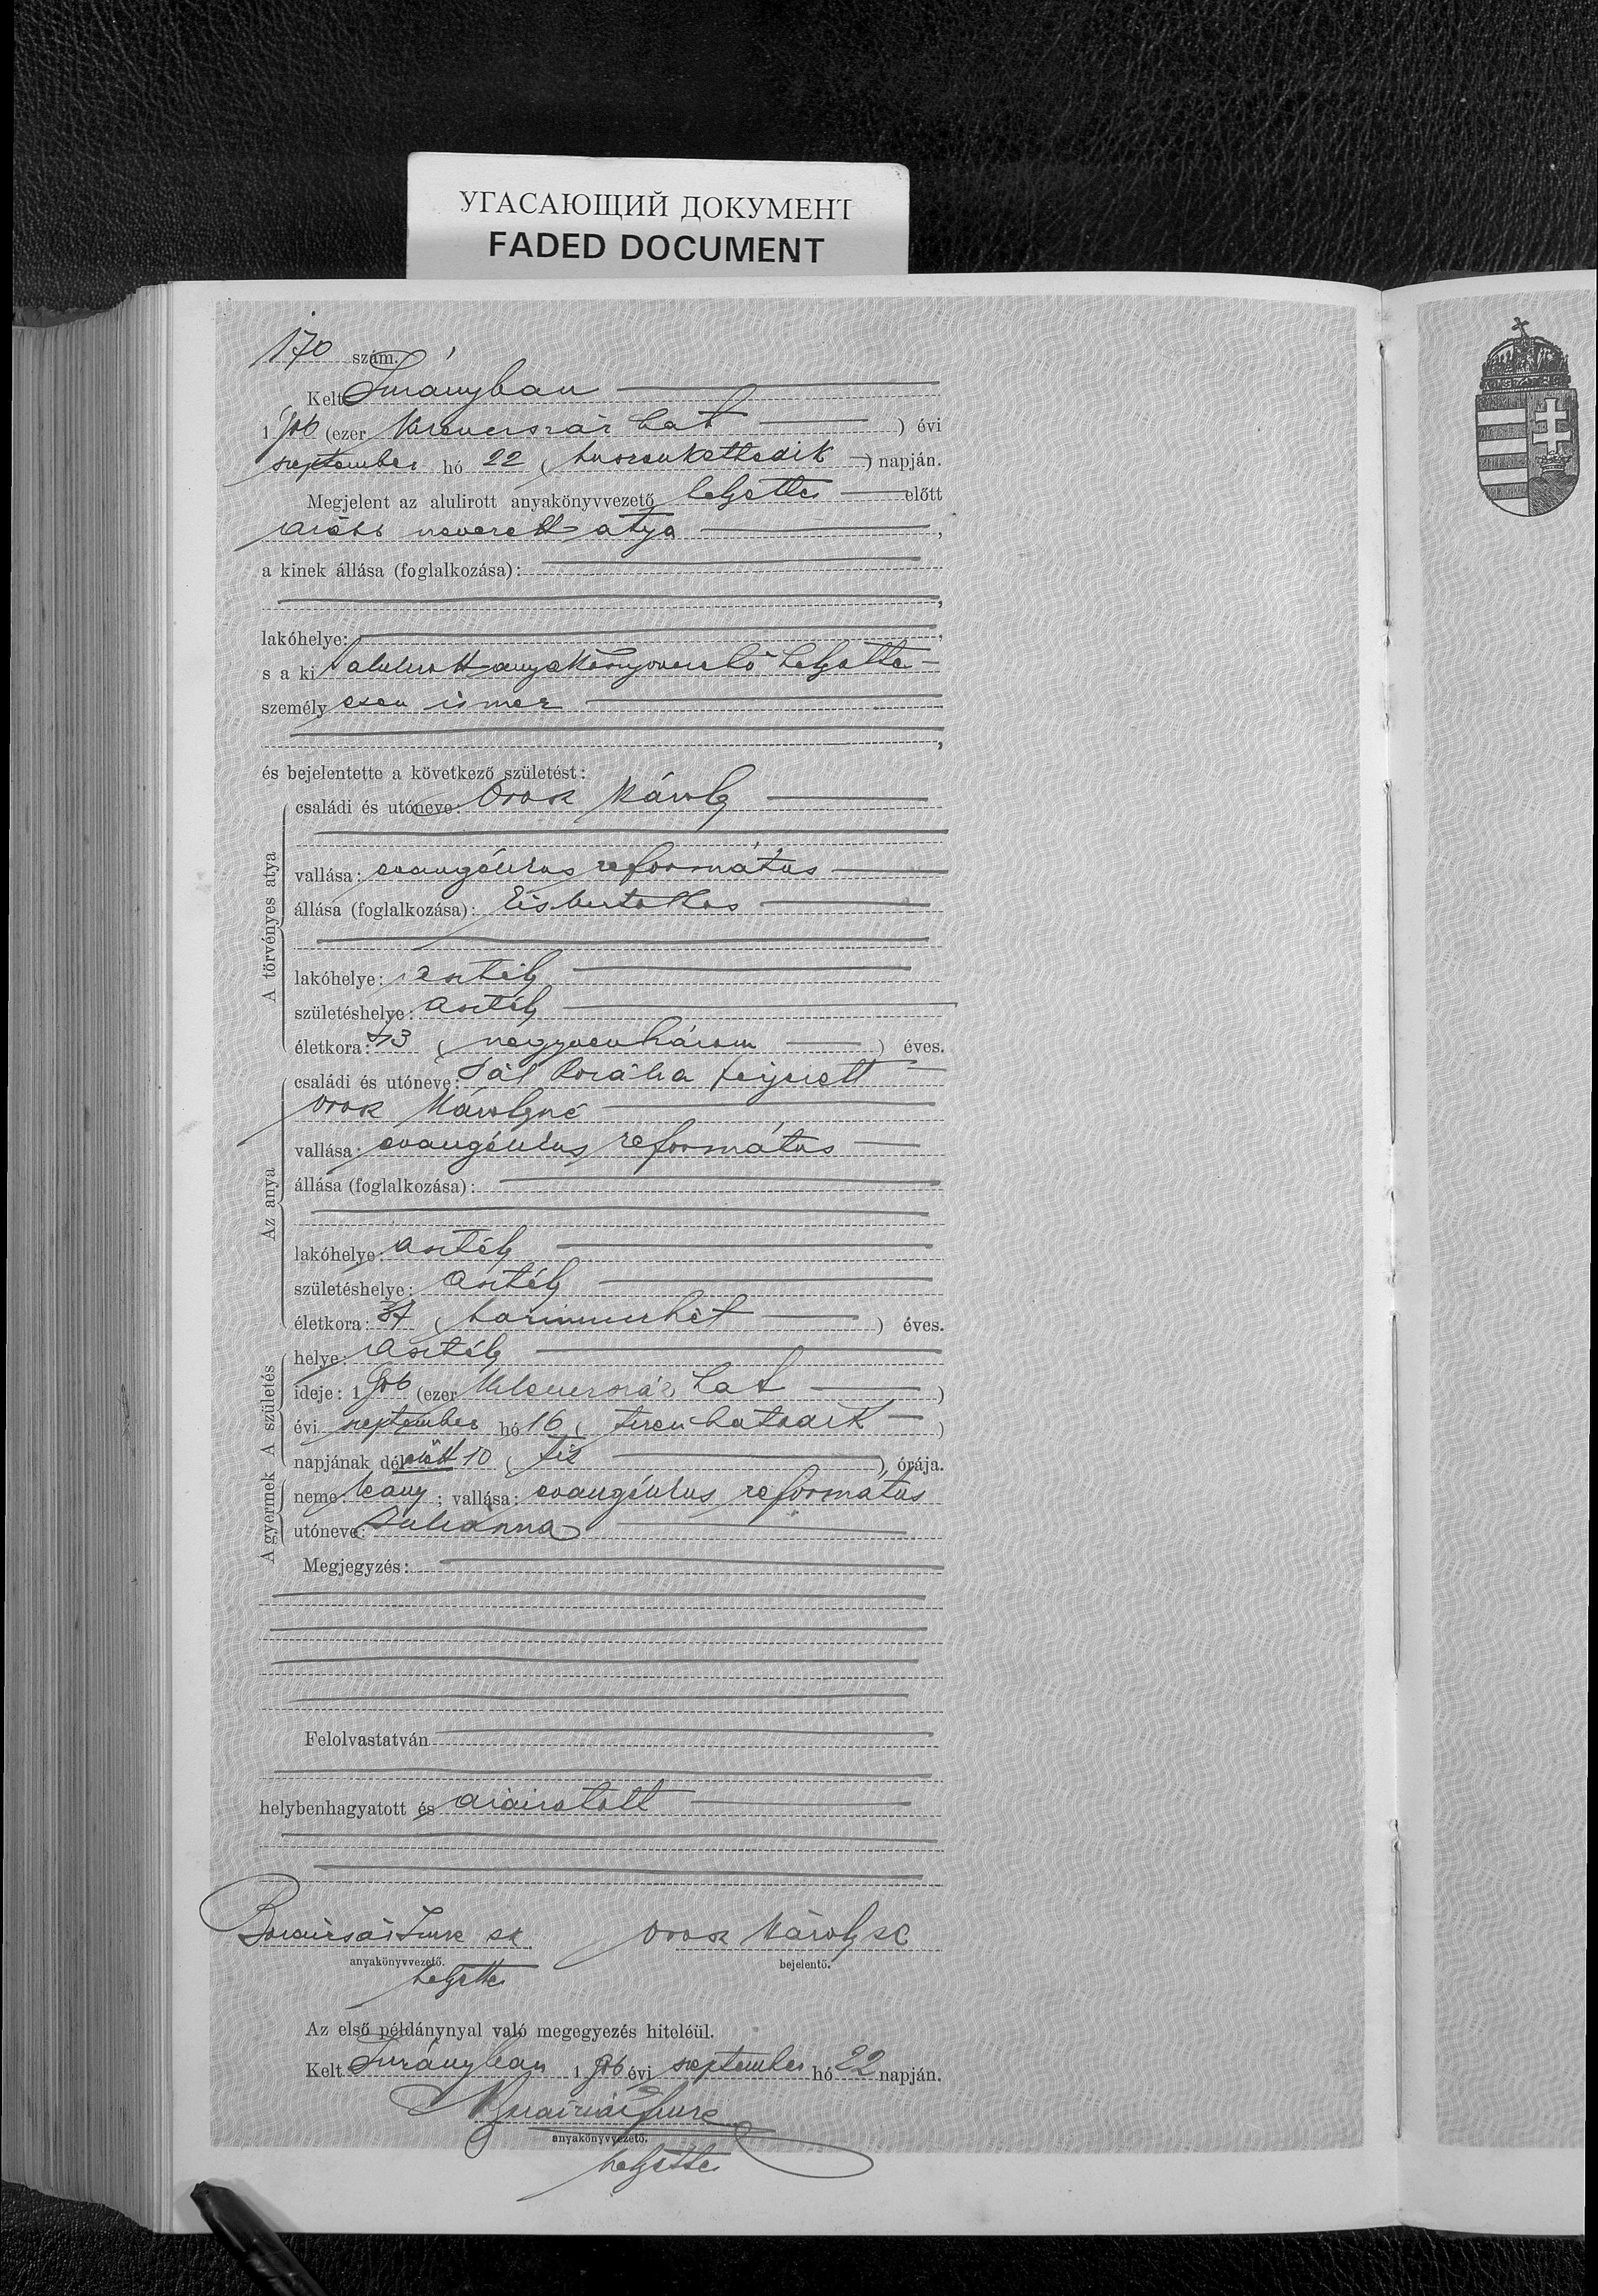 УГАСАЮЩИЙ ДОКУМЕНТ
FADED DOCUMENT
170 szám.
Kelt Surányban
1906 (ezer kilencszáz hat) évi
september hó 22 (huszonkettedik) napján.
Megjelent az alulirott anyakönyvvezető helyettes előtt
alább nevezett atya,
a kinek állása (foglalkozása):
,
lakóhelye:
,
s a ki alulirott anyakönyvvezető helyettes
személyesen ismer
,
és bejelentette a következő születést:
A törvényes atya
családi és utóneve: Orosz Károly
vallása: evangélikus református
állása (foglalkozása): kisbirtokos
lakóhelye: Asztély
születéshelye: Asztély
életkora: 43 (negyvenhárom) éves.
Az anya
családi és utóneve: Pál Rozália férjezett
Orosz Károlyné
vallása: evangélikus református
állása (foglalkozása):
lakóhelye: Asztély
születéshelye: Asztély
életkora: 37 (harminchét) éves.
A születés
helye: Asztély
ideje: 1906 (ezer kilencszáz hat)
évi september hó 16 (tizenhatodik)
napjának délelőtt 10 (tíz) órája.
A gyermek
neme: leány; vallása: evangélikus református
utóneve: Julianna
Megjegyzés:
Felolvastatván
helybenhagyatott és aláiratott
Imre sk
Orosz Károly sk
anyakönyvvezető.
bejelentő.
helyettes
Az első példánynyal való megegyezés hiteléül.
Kelt Surányban 1906 évi september hó 22 napján.
Imre
anyakönyvvezető.
helyettes